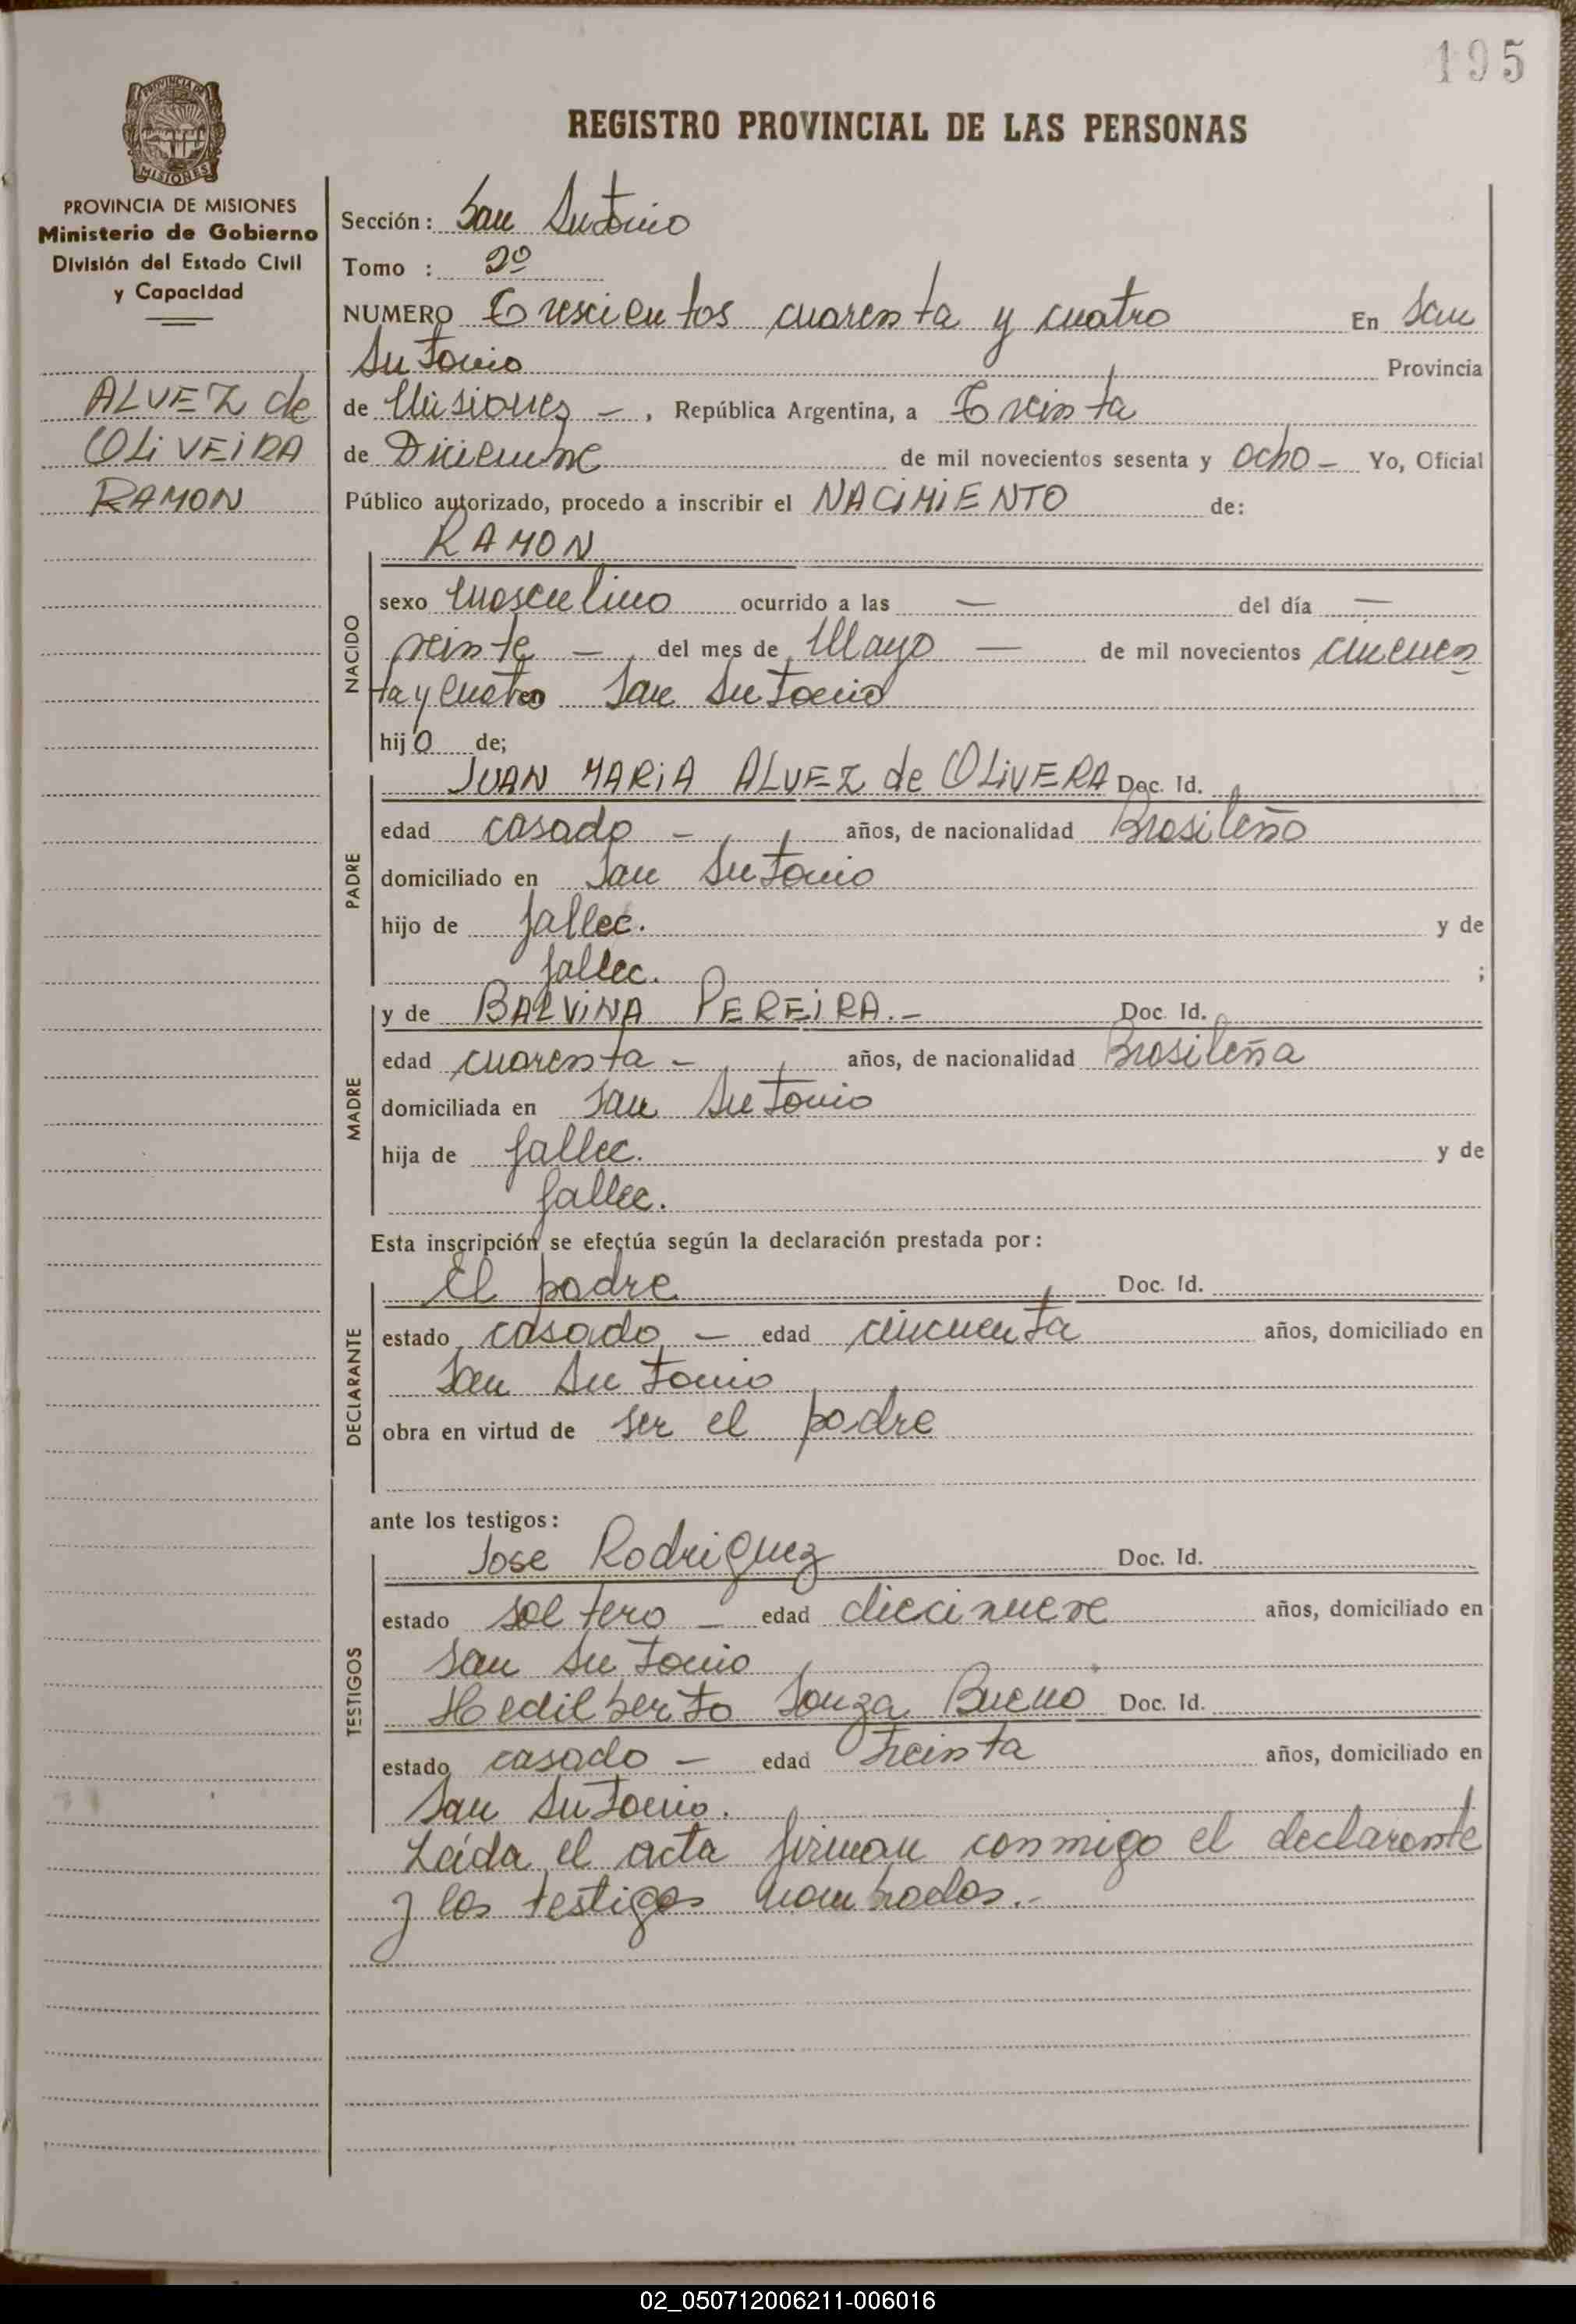 195
PROVINCIA DE MISIONES
MISIONES
PROVINCIA DE MISIONES
Ministerio de Gobierno
División del Estado Civil
y Capacidad
ALVEZ de
OLIVEIRA
RAMON
REGISTRO PROVINCIAL DE LAS PERSONAS
Sección: San Antonio
Tomo : 2º
NUMERO Trescientos cuarenta y cuatro En San
Antonio Provincia
de Misiones - , República Argentina, a Treinta
de Diciembre de mil novecientos sesenta y ocho - Yo, Oficial
Público autorizado, procedo a inscribir el NACIMIENTO de:
RAMON
NACIDO
sexo masculino ocurrido a las — del día —
veinte — del mes de Mayo — de mil novecientos cincuen
ta y cuatro en San Antonio
hijo de;
PADRE
JUAN MARIA ALVEZ de OLIVERA Doc. Id.
edad casado - años, de nacionalidad Brasileño
domiciliado en San Antonio
hijo de fallec. y de
fallec. ;
MADRE
y de BALVINA PEREIRA.- Doc. Id.
edad cuarenta - años, de nacionalidad Brasileña
domiciliada en San Antonio
hija de fallec. y de
fallec.
Esta inscripción se efectúa según la declaración prestada por:
DECLARANTE
El padre Doc. Id.
estado casado - edad cincuenta años, domiciliado en
San Antonio
obra en virtud de ser el padre
ante los testigos:
TESTIGOS
Jose Rodriguez Doc. Id.
estado soltero - edad diecinueve años, domiciliado en
San Antonio
Hedilberto Souza Bueno Doc. Id.
estado casado - edad treinta años, domiciliado en
San Antonio.
Leída el acta firman conmigo el declarante
y los testigos nombrados.-
02_050712006211-006016